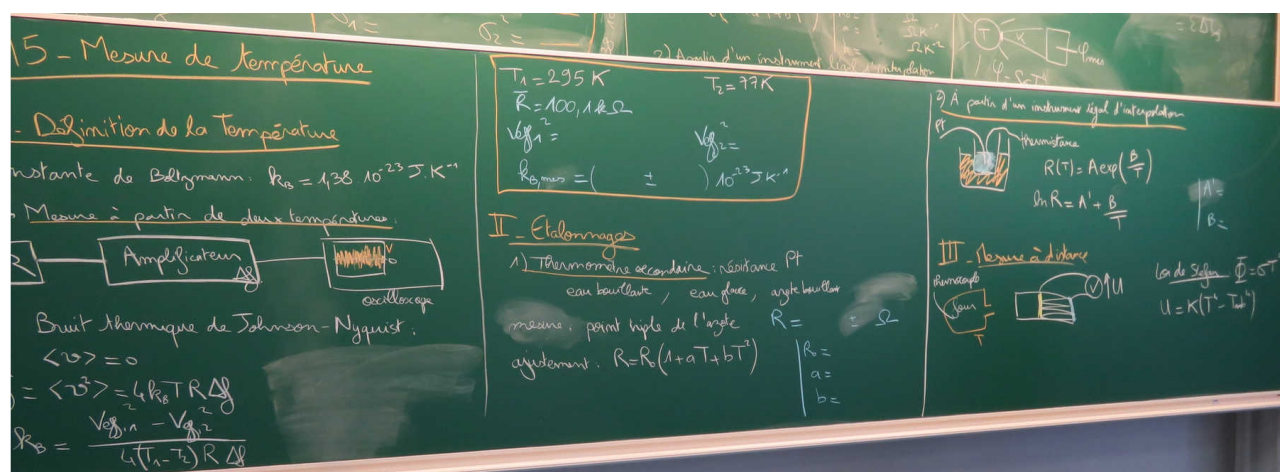 15 - Mesure de température
- Définition de la Température
nstante de Boltzmann : k_B = 1,38 . 10⁻²³ J.K⁻¹
Mesure à partir de deux températures.
R
Amplificateur
Δf
oscilloscope
Bruit thermique de Johnson-Nyquist :
<v> = 0
= <v²> = 4 k_B T R Δf
k_B = (Veff,1² - Veff,2²) / (4(T₁ - T₂) R Δf)
σ₁ =
σ₂² =
T₁ = 295 K T₂ = 77K
R = 100,1 kΩ
Veff1² = Veff2² =
k_B,mes = ( ± ) 10⁻²³ J K⁻¹
II - Etalonnages
1) Thermomètre secondaire : résistance Pt
eau bouillante, eau glace, azote bouillant
mesure : point triple de l'azote R = = Ω
ajustement : R = R₀(1 + aT + bT²)
R₀ =
a =
b =
2) A partir d'un instrument
Ω
ΩK⁻²
T
φmes
2) À partir d'un instrument légal d'interpolation
Pt
thermistance
R(T) = A exp(B/T)
ln R = A' + B/T
A' =
B =
III - Mesure à distance
four
T
U
Loi de Stefan : Φ = σT⁴